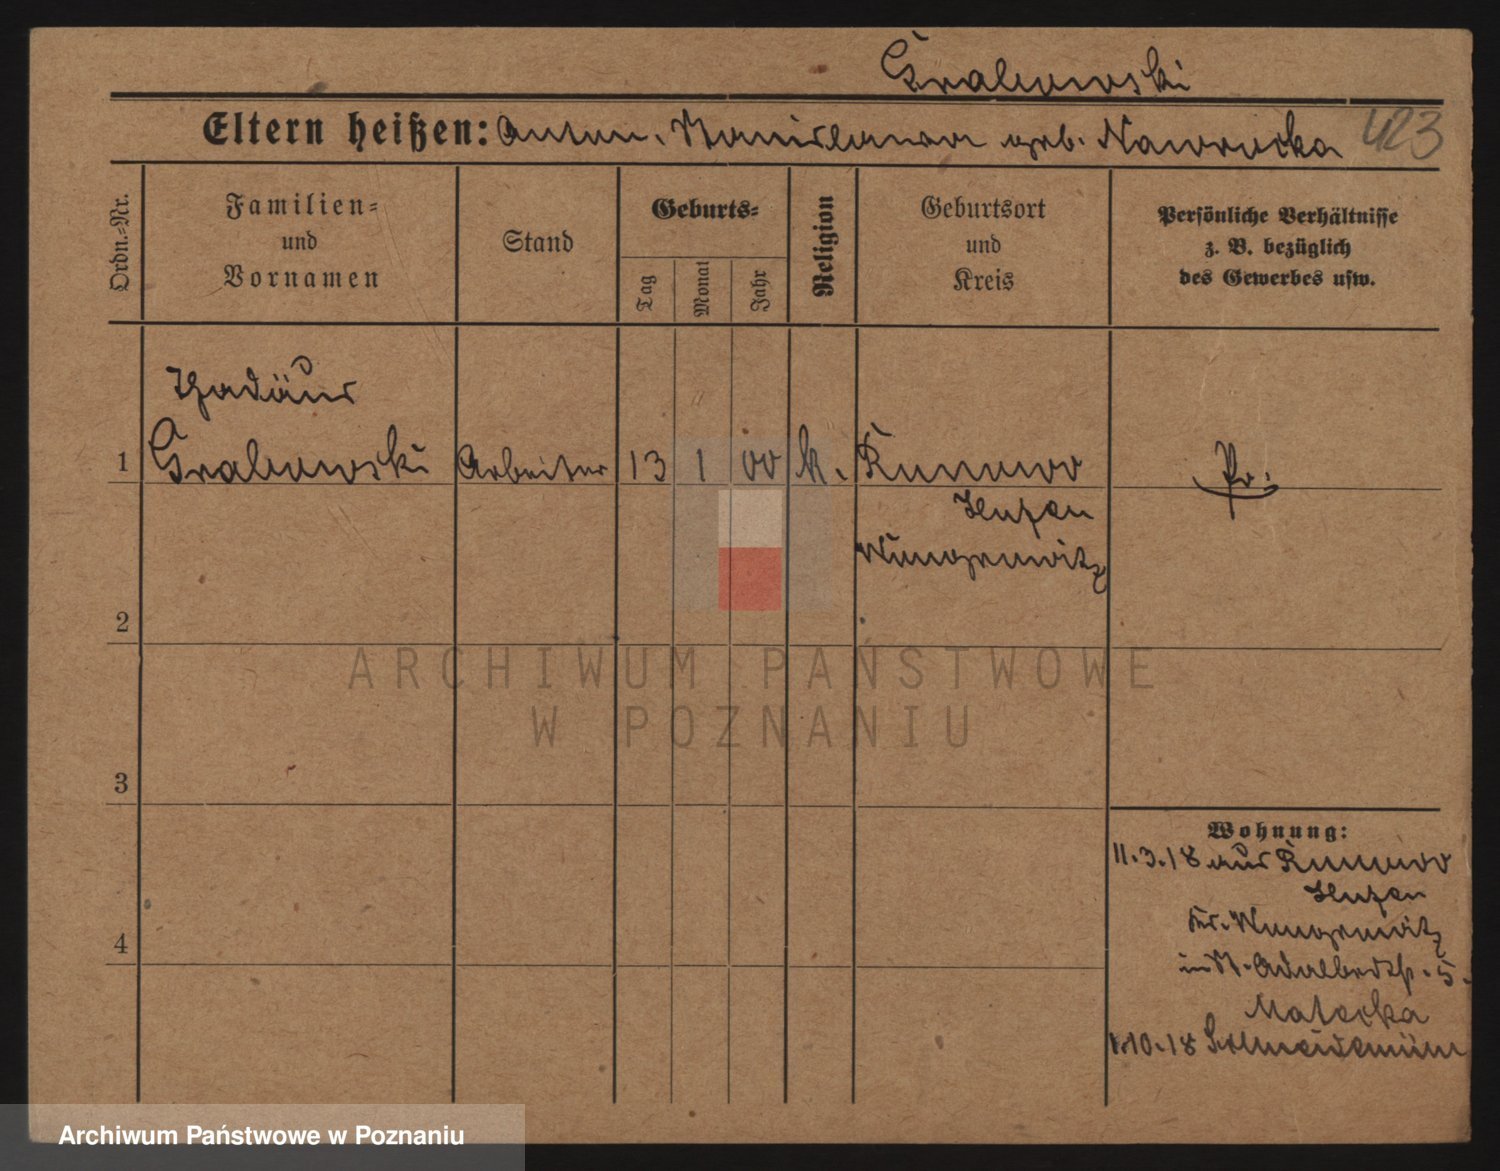 Grabowski
Eltern heißen: Anton. Stanislawa geb. Nawrocka 423
Ordn.=Nr.
Familien=
und
Vornamen
Stand
Geburts=
Tag
Monat
Jahr
Religion
Geburtsort
und
Kreis
Persönliche Verhältnisse
z. B. bezüglich
des Gewerbes usw.
Thadäus
1 Grabowski Arbeiter 13 1 00 k. Kunowo Pr.
Huzen
Wongrowitz
2
3
4
Wohnung:
11.3.18 aus Kunowo
Huzen
Kr. Wongrowitz
in St. Adalbertstr. 5.
Matecka
1.10.18 Schneidemühl
ARCHIWUM PAŃSTWOWE
W POZNANIU
Archiwum Państwowe w Poznaniu